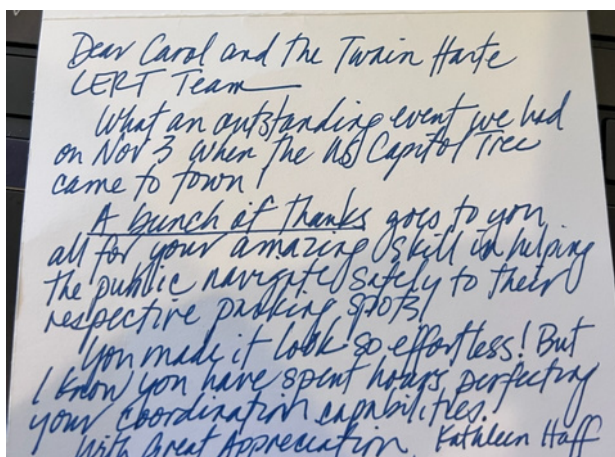 Dear Carol and the Twain Harte
CERT Team—
What an outstanding event we had
on Nov 3 when the US Capitol Tree
came to town!
A bunch of thanks goes to you
all for your amazing skill in helping
the public navigate safely to their
respective parking spots!
You made it look so effortless! But
I know you have spent hours perfecting
your coordination capabilities.
With Great Appreciation, Kathleen Haff